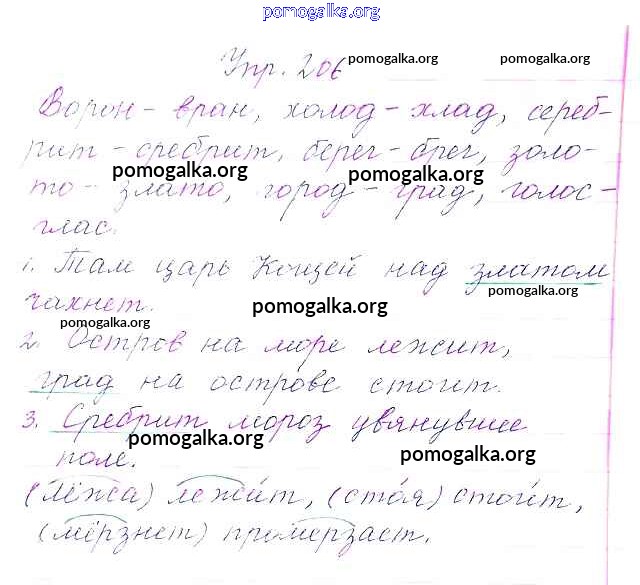 pomogalka.org
Упр. 206
pomogalka.org
pomogalka.org
Ворон - вран, холод - хлад, сереб-
рит - сребрит, берег - брег, золо-
pomogalka.org
pomogalka.org
то - злато, город - град, голос -
глас.
1. Там царь Кощей над златом
pomogalka.org
чахнет.
pomogalka.org
pomogalka.org
2. Остров на море лежит,
град на острове стоит.
3. Сребрит мороз увянувшее
pomogalka.org
поле.
pomogalka.org
(лёжа) лежит, (стоя) стоит,
(мёрзнет) промерзает.